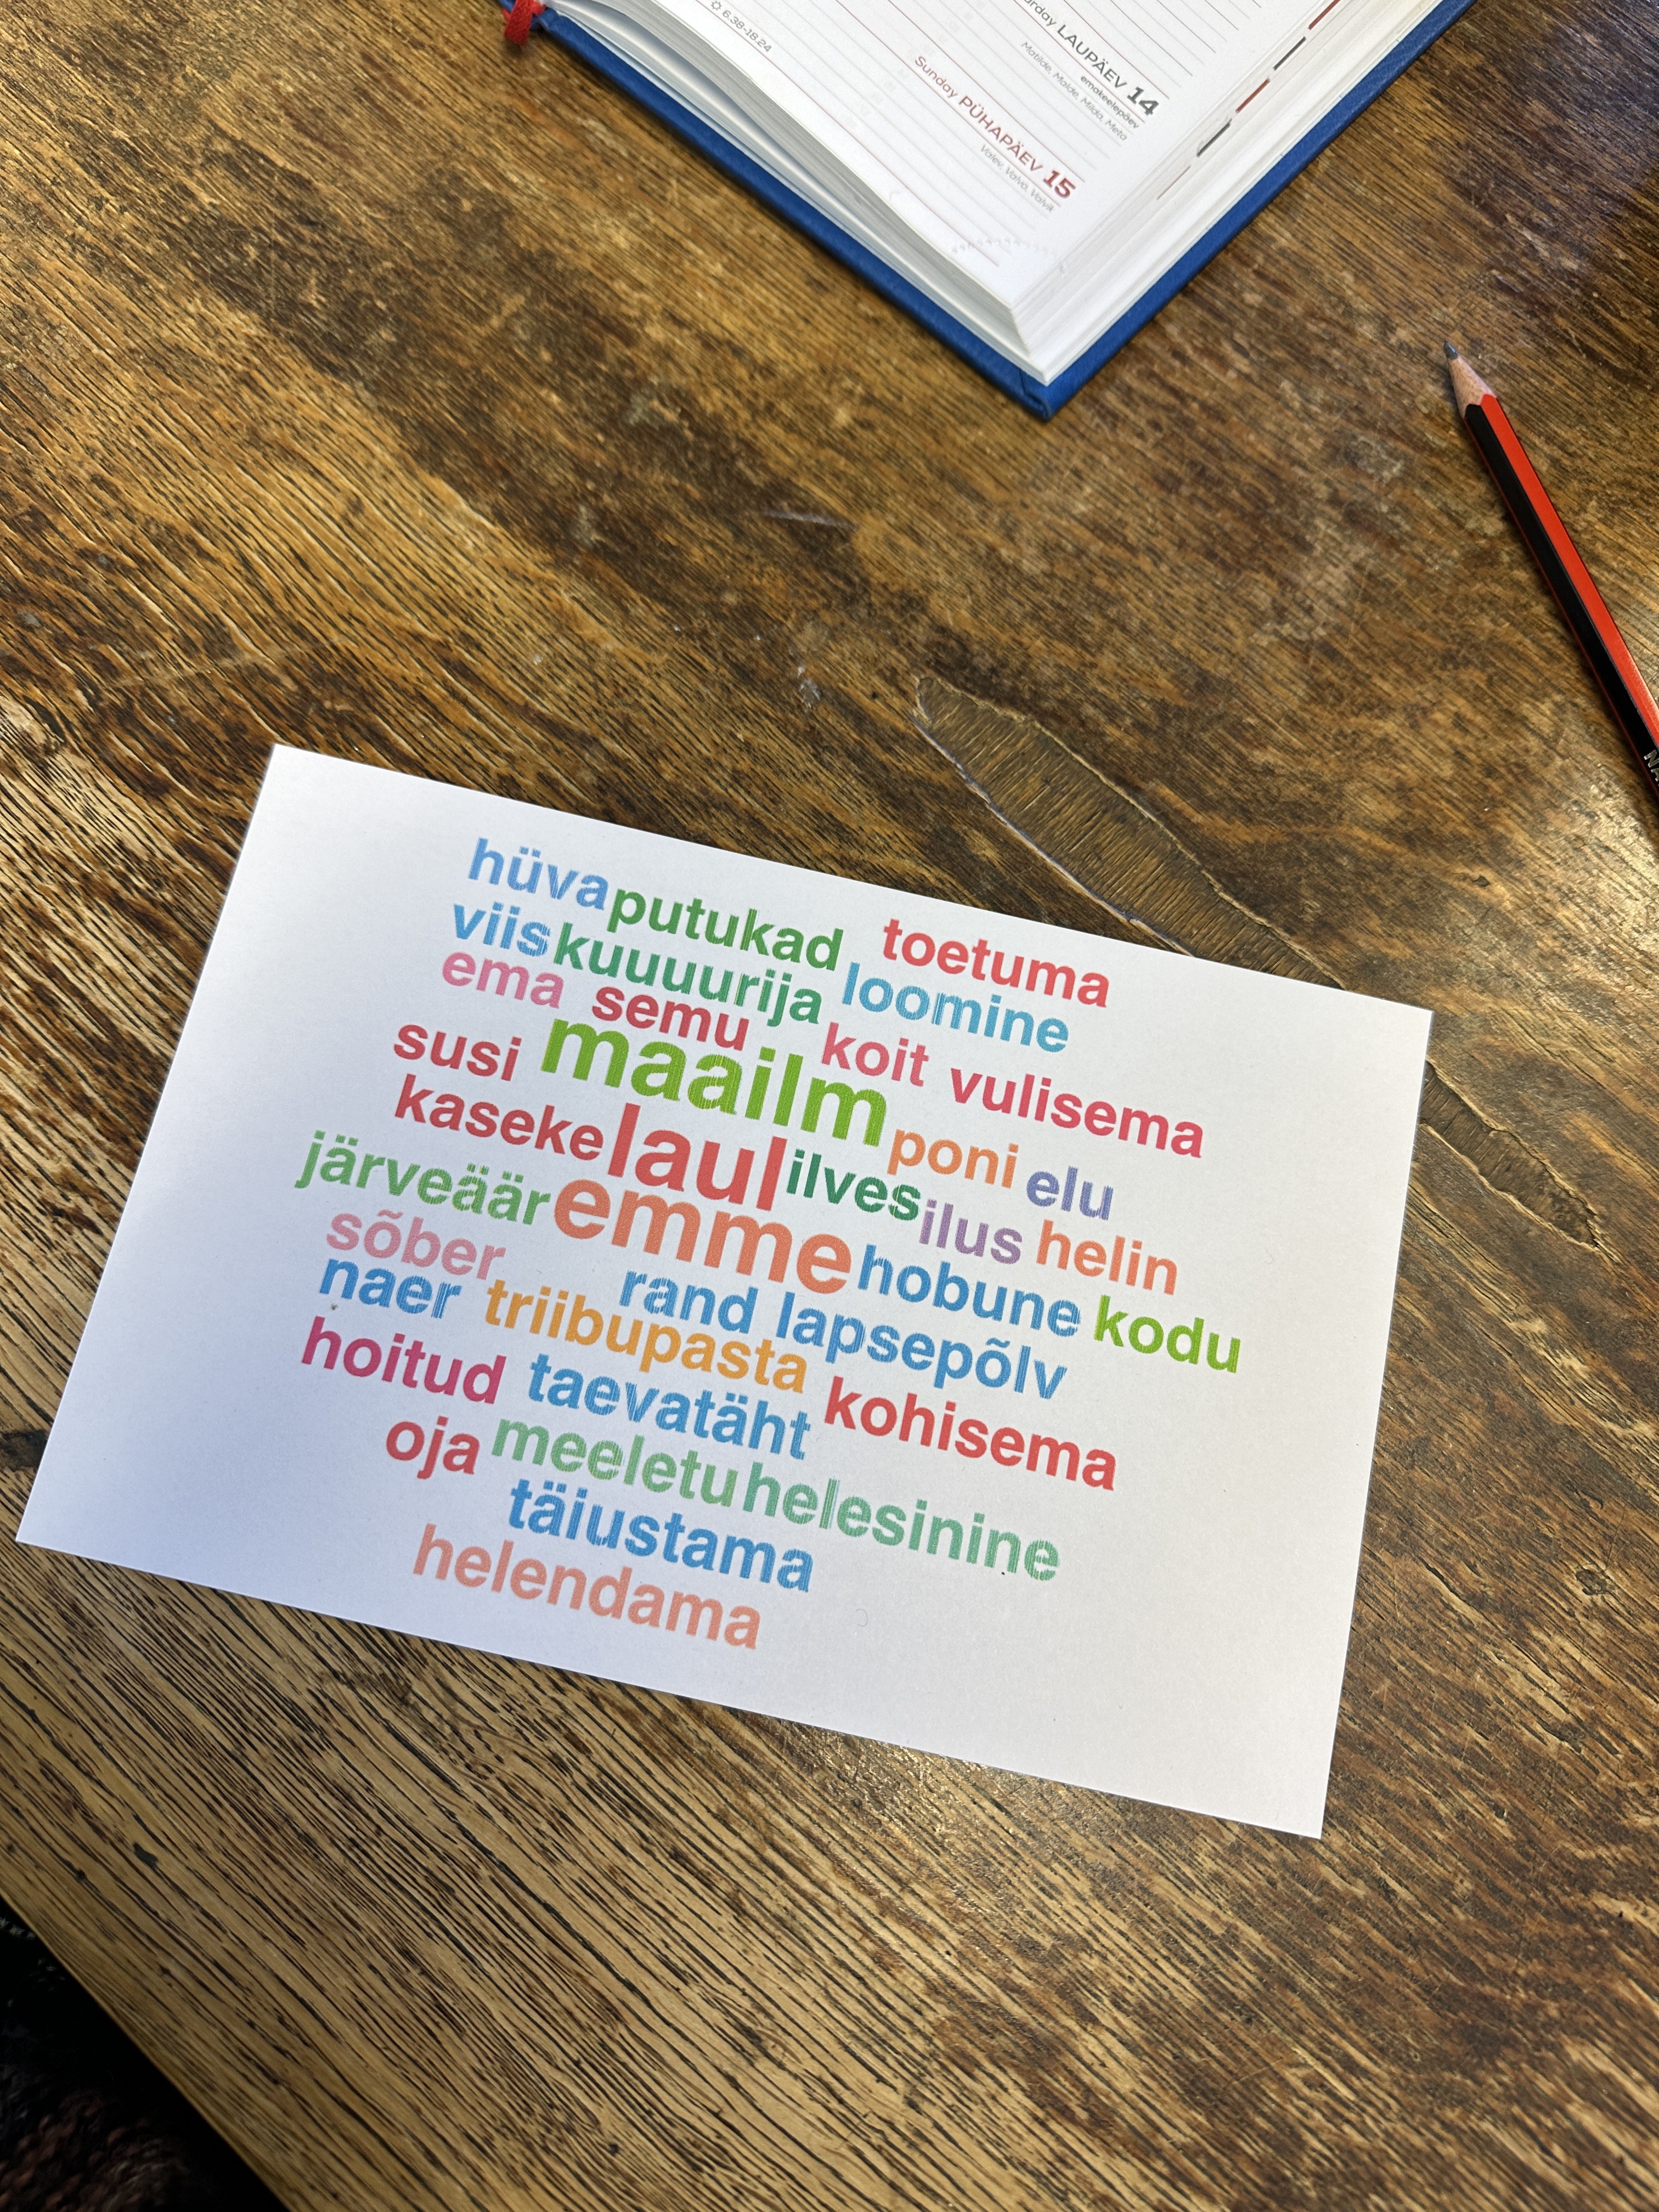 6.38-18.24
LAUPÄEV 14
emakeelepäev
Matilde, Malde, Milda, Meta
Sunday PÜHAPÄEV 15
Valev, Valvo, Valvik
hüva putukad toetuma
viis kuuuurija loomine
ema semu koit vulisema
susi maailm poni elu
kaseke laul ilves ilus helin
järveäär emme hobune kodu
sõber rand lapsepõlv
naer triibupasta kohisema
hoitud taevatäht
oja meeletu helesinine
täiustama
helendama